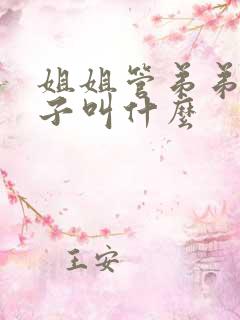 姐姐管弟弟
子叫什麼
王安